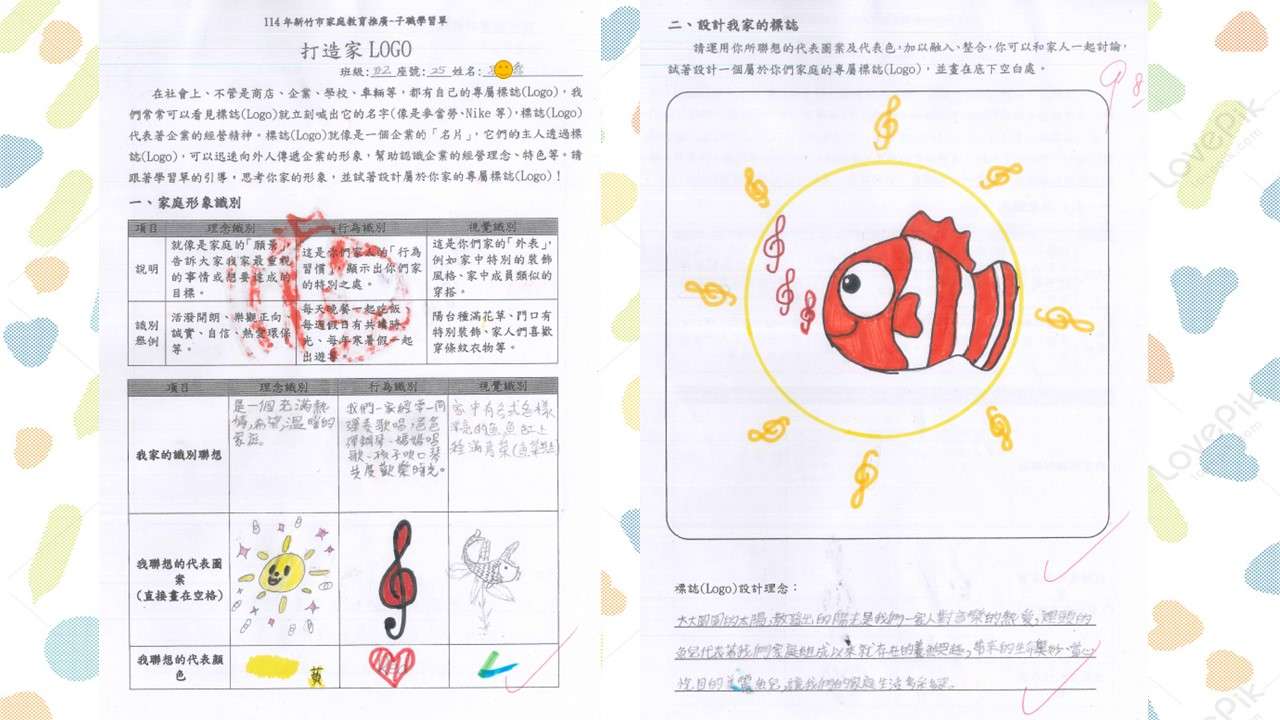 114年新竹市家庭教育推廣-子職學習單
打造家 LOGO
班級: 座號: 25 姓名:
在社會上、不管是商店、企業、學校、車輛等，都有自己的專屬標誌(Logo)，我
們常常可以看見標誌(Logo)就立刻喊出它的名字(像是麥當勞、Nike 等)，標誌(Logo)
代表著企業的經營精神。標誌(Logo)就像是一個企業的「名片」，它們的主人透過標
誌(Logo)，可以迅速向外人傳遞企業的形象，幫助認識企業的經營理念、特色等。請
跟著學習單的引導，思考你家的形象，並試著設計屬於你家的專屬標誌(Logo)！
一、家庭形象識別
項目 理念識別 行為識別 視覺識別
說明
就像是家庭的「願景」，
告訴大家我家最重視
的事情或想要達成的
目標。
這是你們家人的「行為
習慣」，顯示出你們家
的特別之處。
這是你們家的「外表」，
例如家中特別的裝飾
風格、家中成員類似的
穿搭。
識別
舉例
活潑開朗、樂觀正向、
誠實、自信、熱愛環保
等。
每天晚餐一起吃飯、
每週假日有共讀時
光、每年寒暑假一起
出遊等。
陽台種滿花草、門口有
特別裝飾、家人們喜歡
穿條紋衣物等。
項目 理念識別 行為識別 視覺識別
我家的識別聯想
是一個充滿熱
情,希望,溫暖的
家庭。
我們一家經常一同
彈奏歌唱,爸爸
彈鋼琴、媽媽唱
歌、孩子吹口琴
共度歡樂時光。
家中有各式各樣
漂亮的魚,魚缸上
種滿青菜(魚菜共生)
我聯想的代表圖
案
(直接畫在空格)
我聯想的代表顏
色
黃
二、設計我家的標誌
請運用你所聯想的代表圖案及代表色，加以融入、整合，你可以和家人一起討論，
試著設計一個屬於你們家庭的專屬標誌(Logo)，並畫在底下空白處。
98
標誌(Logo)設計理念：
大大圓圓的太陽,散發出的陽光是我們一家人對音樂的熱愛,裡頭的
魚兒代表著我們家庭組成以來就存在的養魚興趣,帶來的生命奧妙、賞心
悅目的美麗魚兒,讓我們的家庭生活多采
LovePik
LovePik